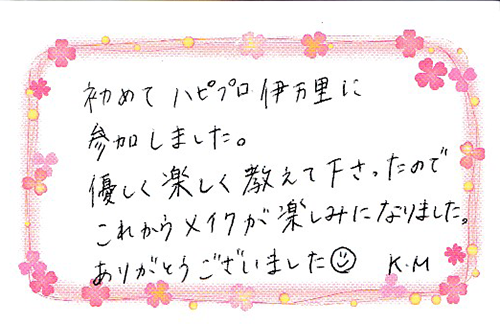 初めて ハピプロ 伊万里に
参加しました。
優しく 楽しく 教えて下さったので
これから メイクが 楽しみになりました。
ありがとうございました☺ K.M